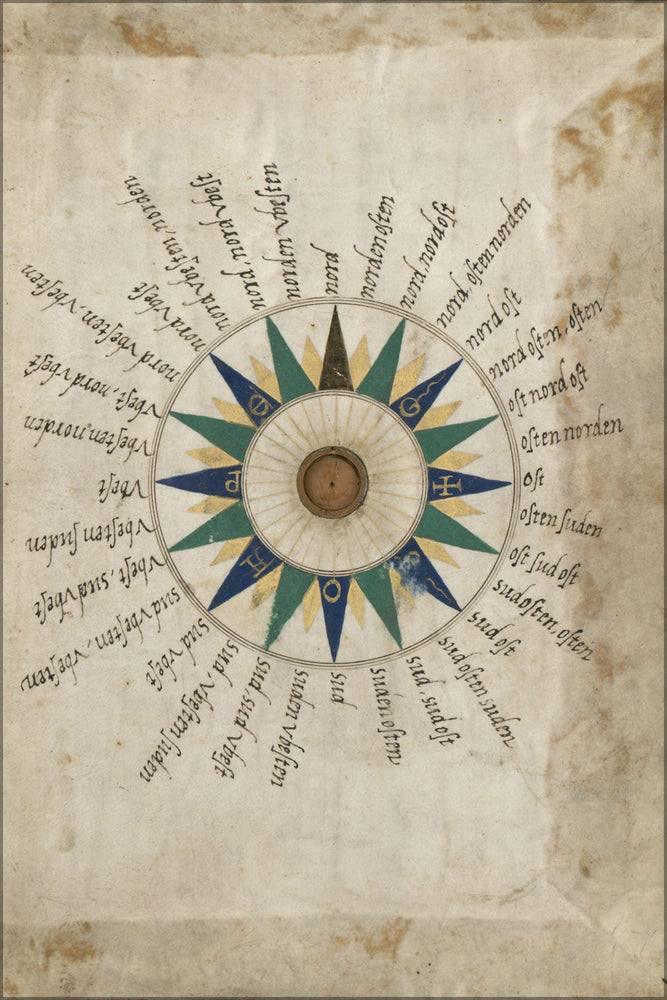 nord
nordenoſten
nord, nordoſt
nord, oſtennorden
nord oſt
nordoſten, oſten
oſt nord oſt
oſtennorden
Oſt
oſten ſuden
oſt ſud oſt
sudoſten, oſten
sud oſt
sud oſten suden
sud, sudoſt
sudenoſten
sud
suden vbeſten
sud, sud vbeſt
sud vbeſten ſuden
sud vbeſt
sud vbeſten, vbeſten,
vbeſt, sud vbeſt
vbeſten ſuden
vbeſt
vbeſten, norden
vbeſt, nord vbeſt
nord vbeſten, vbeſten
nord vbeſt
nord vbeſten, norden
nord, nord vbeſt
norden vbeſten
G
O
A
P